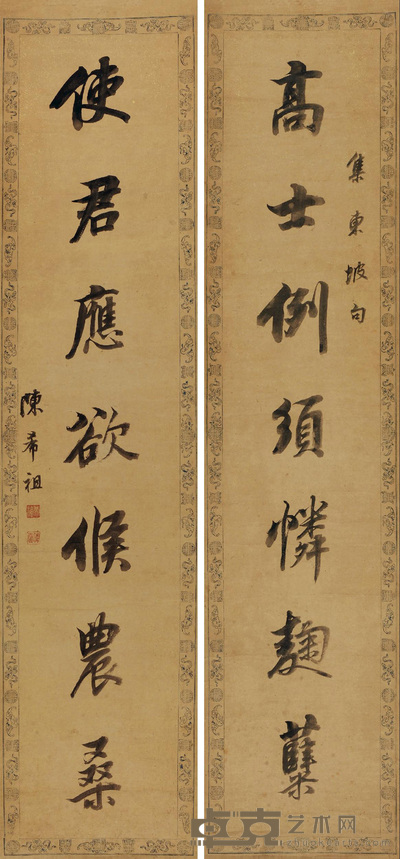 高士例須憐麴糵
集東坡句
使君應欲候農桑
陳希祖
卓克艺术网